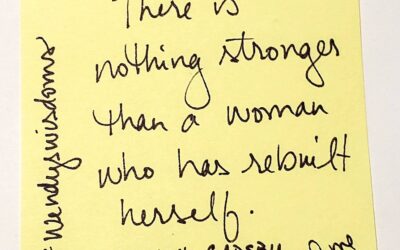 There is
nothing stronger
than a woman
who has rebuilt
herself.
#wendyswisdoms